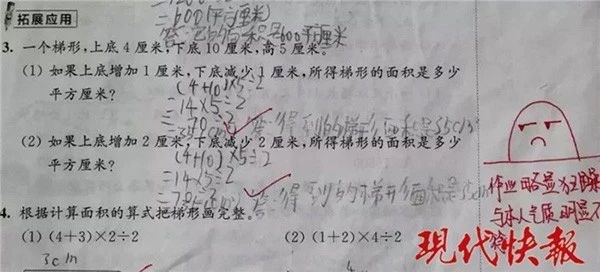 =600(平方厘米)
拓展应用
答:它的面积是600平方厘米
3. 一个梯形,上底 4 厘米,下底 10 厘米,高 5 厘米。
(1) 如果上底增加 1 厘米,下底减少 1 厘米,所得梯形的面积是多少
平方厘米?
(4+10)×5÷2
=14×5÷2
=70÷2
答:得到的梯形面积是35cm²
(2) 如果上底增加 2 厘米,下底减少 2 厘米,所得梯形的面积是多少
平方厘米?
(4+10)×5÷2
=14×5÷2
答:得到的梯形面积是
4. 根据计算面积的算式把梯形画完整。
(1) (4+3)×2÷2
(2) (1+2)×4÷2
3cm
作业略显狂躁
与本人气质明显不
现代快报